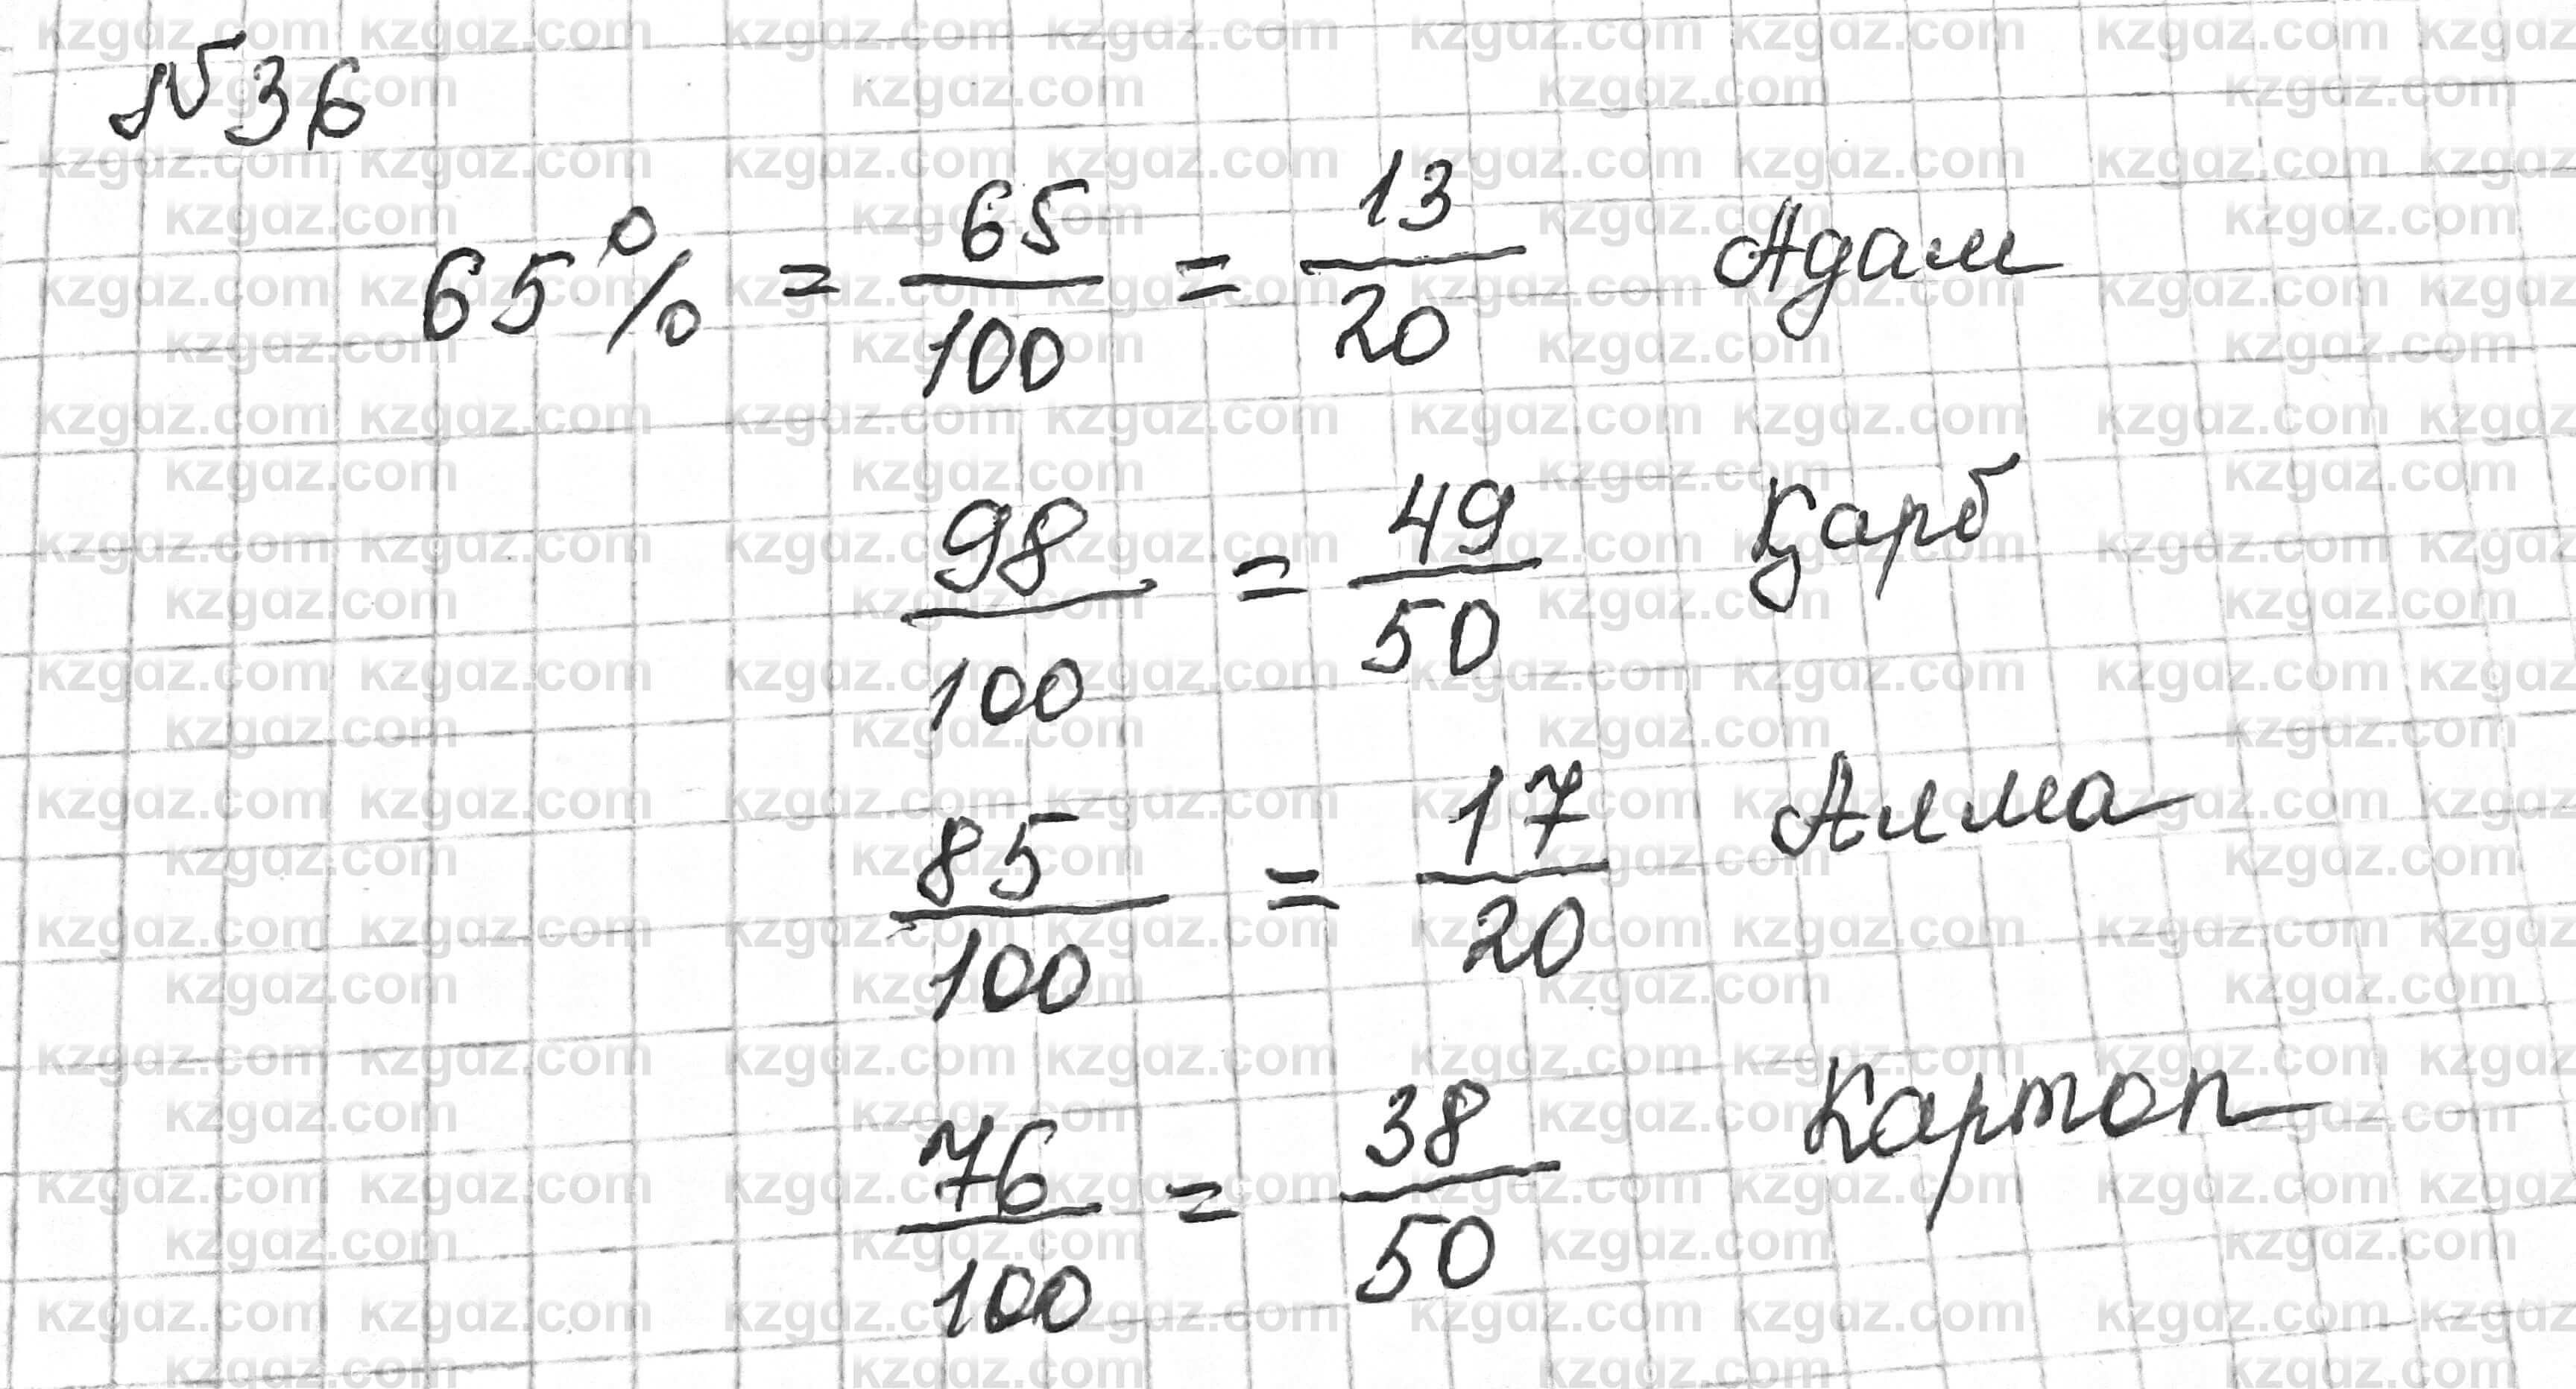 №36
65% = 65/100 = 13/20 Адам
98/100 = 49/50 Қарб
85/100 = 17/20 Алма
76/100 = 38/50 Картоп
kzgdz.com